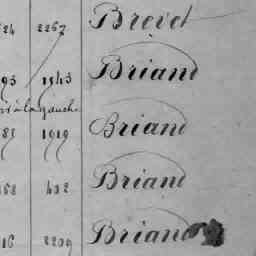 24 2267 Brevet
93 1543 Briand
à la gauche
85 1919 Briand
158 402 Briand
16 2209 Briand